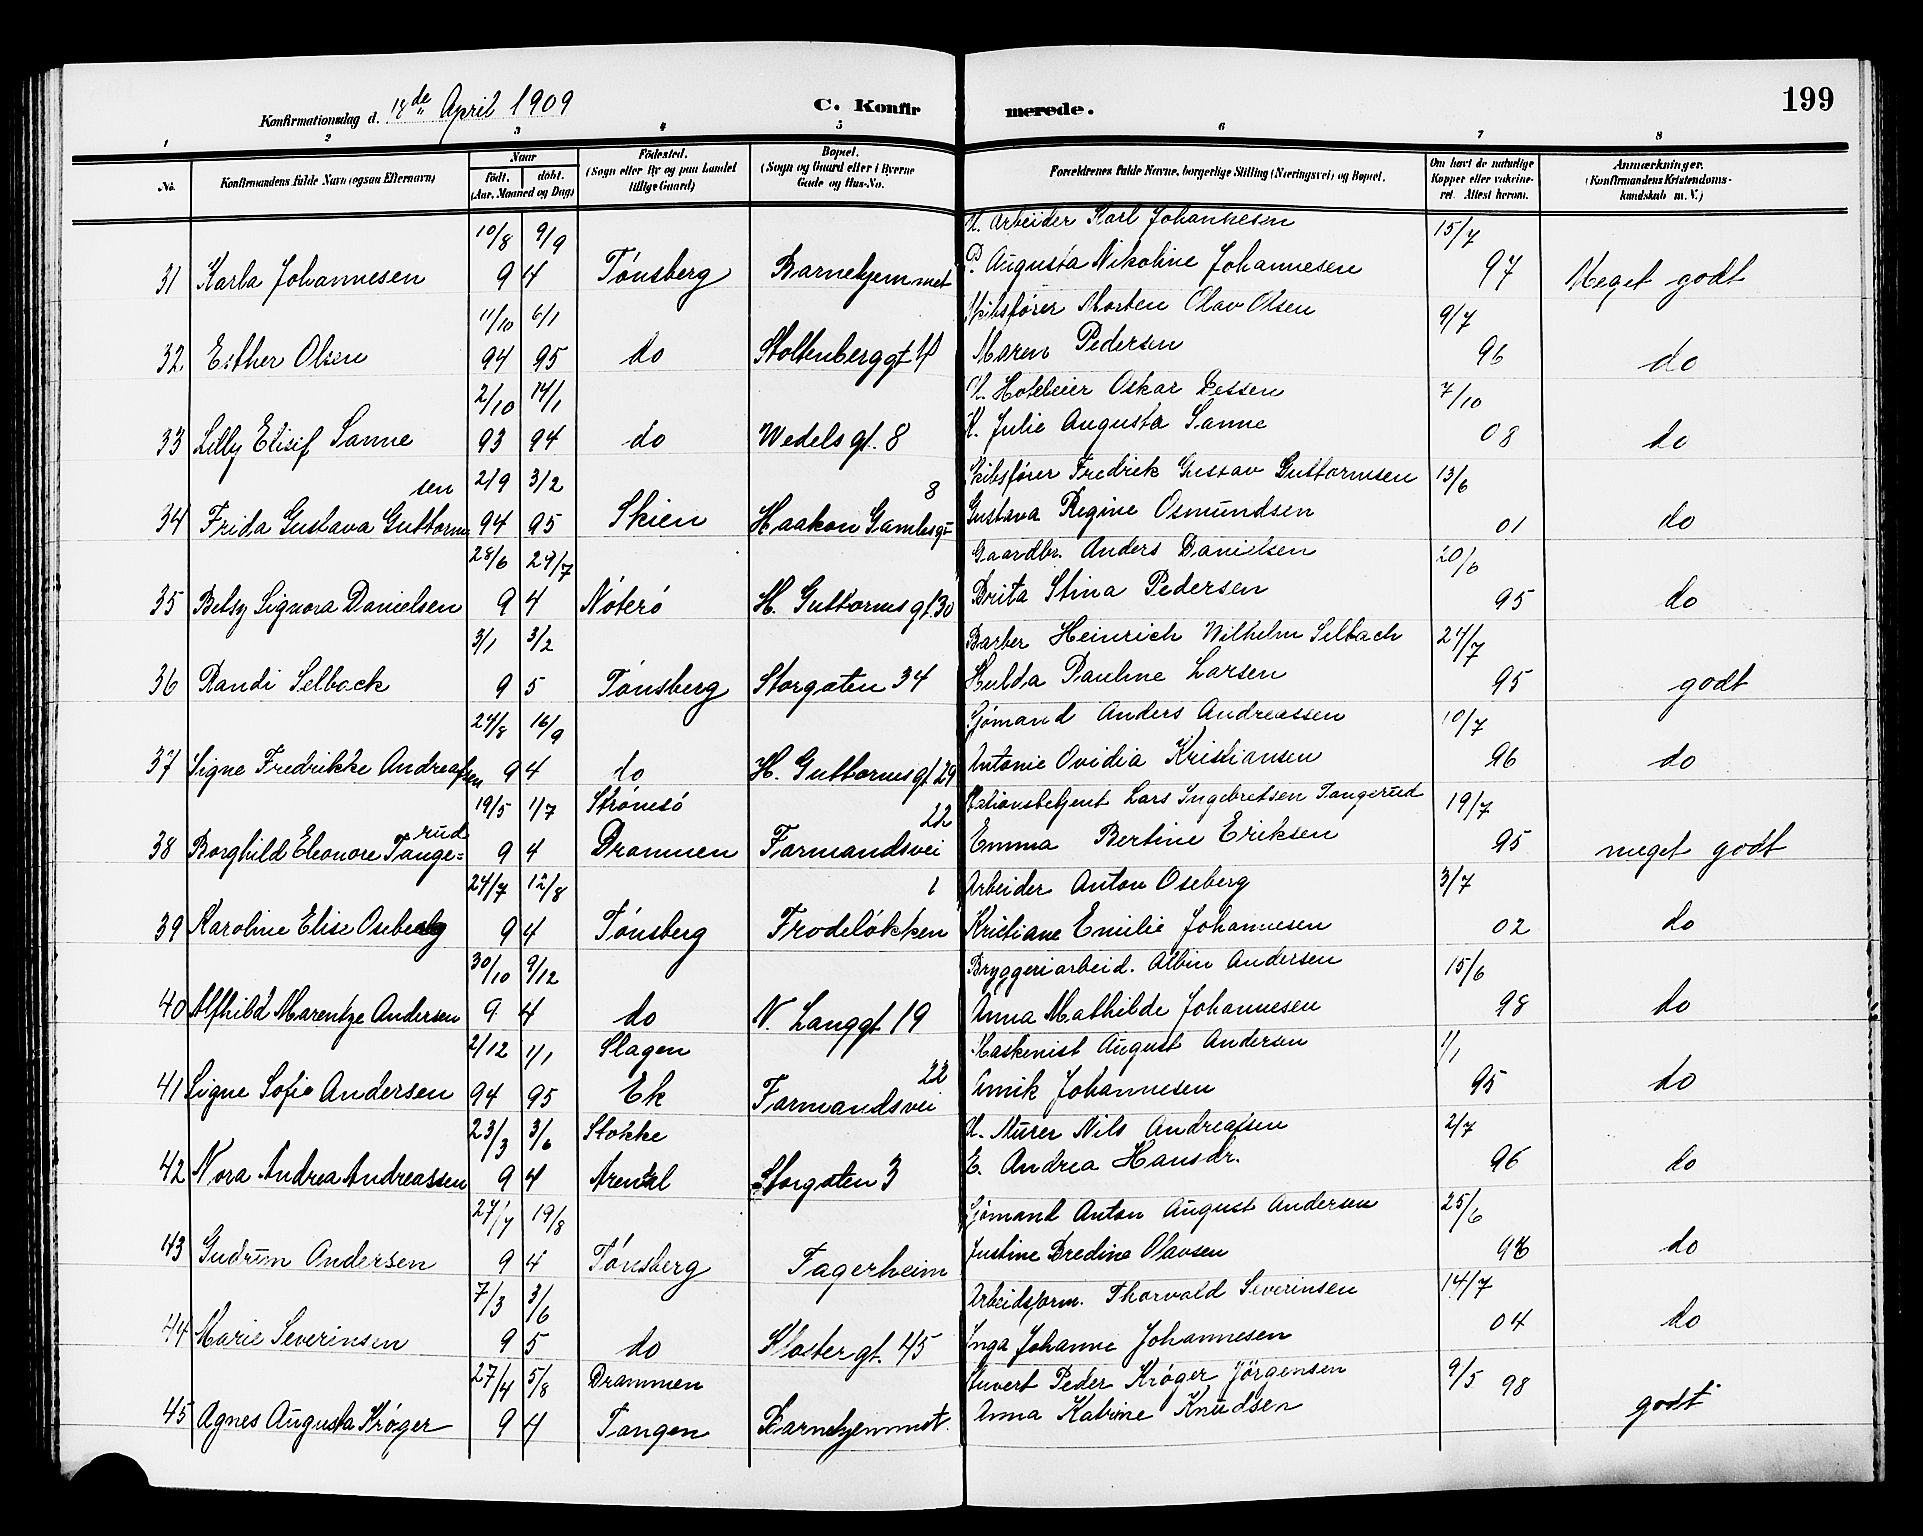 199
Konfirmationsdag d. 18de April 1909
C. Konfirmerede.
1 2 3 4 5 6 7 8
No.
Konfirmandens fulde Navn (ogsaa Efternavn)
Naar
født. døbt.
(Aar, Maaned og Dag)
Fødested.
(Sogn eller By og paa Landet
tillige Gaard)
Bopæl.
(Sogn og Gaard eller i Byerne
Gade og Hus-No.
Forældrenes fulde Navne, borgerlige Stilling (Næringsvei) og Bopæl.
Om havt de naturlige
Kopper eller vakcine-
ret. Attest herom.
Anmærkninger.
(Konfirmandens Kristendoms-
kundskab m. V.)
10/8 9/9 Arbeider Karl Johannesen 15/7
31 Karla Johannesen 9 4 Tønsberg Barnehjemmet Augusta Nikoline Johannesen 97 Meget godt
11/10 6/1 Skibsfører Morten Olav Olsen 9/7
32. Esther Olsen 94 95 do Stoltenberggt 4 Maren Pedersen 96 do
2/10 14/1 Hoteleier Oskar Dessen 7/10
33 Lilly Elisif Sanne 93 94 do Wedels gt. 8 Julie Augusta Sanne 08 do
sen 2/9 3/2 8 Skibsfører Fredrik Gustav Guttormsen 13/6
34 Frida Gustava Guttorm 94 95 Skien Haakon Gamlesg= Gustava Regine Osmundsen 01 do
28/6 29/7 Gaardbr. Anders Danielsen 20/6
35 Betsy Signora Danielsen 9 4 Nøterø H. Guttormsgt 30 Brita Stina Pedersen 95 do
3/1 3/2 Barber Heinrich Wilhelm Selbach 24/7
36 Randi Selback 9 5 Tønsberg Storgaten 34 Hulda Pauline Larsen 95 godt
24/8 16/9 Sjømand Anders Andreassen 10/7
37 Signe Fredrikke Andreassen 9 4 do H. Guttormsgt 29 Antonie Ovidia Kristiansen 96 do
rud 19/5 1/7 Strømsø 22 Stationsbetjent Lars Ingebretsen Tangerud 19/7
38 Borghild Eleonore Tange= 9 4 Drammen Farmandsvei Emma Bertine Eriksen 95 meget godt
24/7 12/8 1 Arbeider Anton Oseberg 3/7
39 Karoline Elise Oseberg 9 4 Tønsberg Frodeløkken Kristiane Emilie Johannesen 02 do
30/10 9/12 Bryggeriarbeid. Albin Andersen 15/6
40 Alfhild Marentze Andersen 9 4 do N. Langgt 19 Anna Mathilde Johannesen 98 do
2/12 1/1 Slagen Maskenist August Andersen 1/1
41 Signe Sofie Andersen 94 95 Ek Farmandsvei 22 Johannesen 95 do
23/3 3/6 Stokke Murer Nils Andreassen 2/7
42 Nora Andrea Andreassen 9 4 Storgaten 3 E. Andrea Hansdr. 96 do
27/7 19/8 Sjømand Anton August Andersen 25/6
43 Gudrun Andersen 9 4 Tønsberg Fagerheim Justine Bredine Olavsen do
7/3 3/6 Arbeidsform. Thorvald Severinsen 14/7
44 Marie Severinsen 9 5 do Klostergt. 45 Inga Johanne Johannesen 04 do
27/4 5/8 Drammen Stuvert Peder Krøger Jørgensen 9/5 98
45 Agnes Augusta Krøger 9 4 Tangen Barnehjemmet. Anna Katrine Knudsen godt